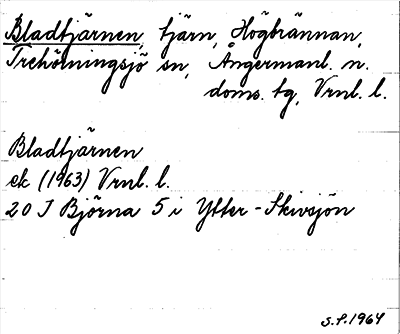 Bladtjärnen, tjärn, Högbrännan,
Trehörningsjö sn, Ångermanl. n.
doms. tg, Vrnl. l.
Bladtjärnen
ek (1963) Vrnl. l.
20 I Björna 5 i Ytter-Skivsjön
S.F. 1964